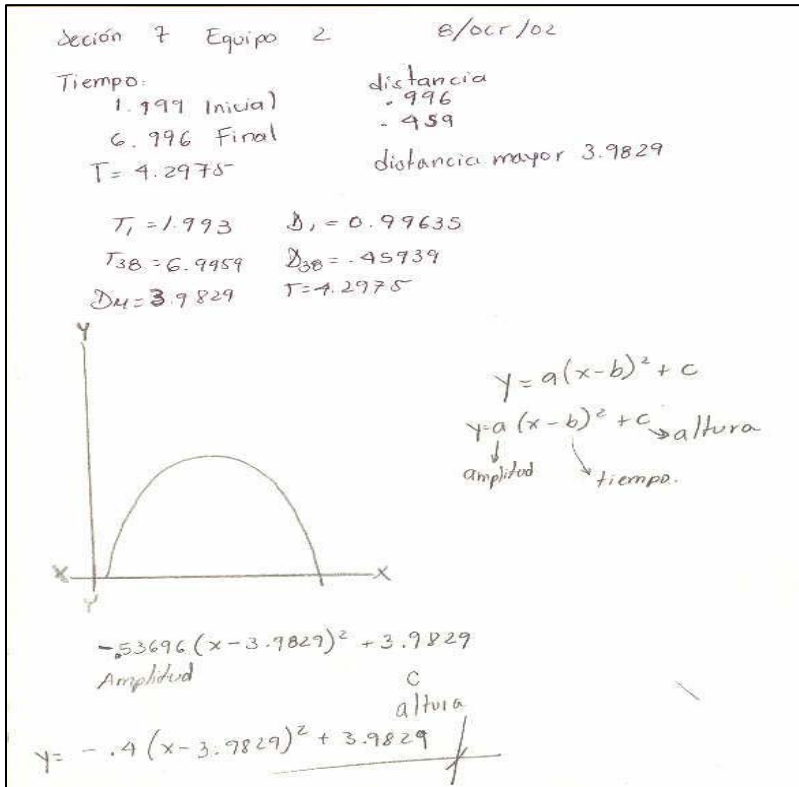 Seción 7 Equipo 2 8/oct/02
Tiempo: distancia
1.999 Inicial .996
6.996 Final .459
T= 4.2975 distancia mayor 3.9829
T1 = 1.993 D1 = 0.99635
T38 = 6.9959 D38 = .45939
DM = 3.9829 T = 4.2975
Y
y = a(x-b)² + c
y=a (x-b)² + c → altura
amplitud tiempo.
X X
Y
-.53696 (x-3.9829)² + 3.9829
Amplitud C
altura
y= - .4 (x-3.9829)² + 3.9829